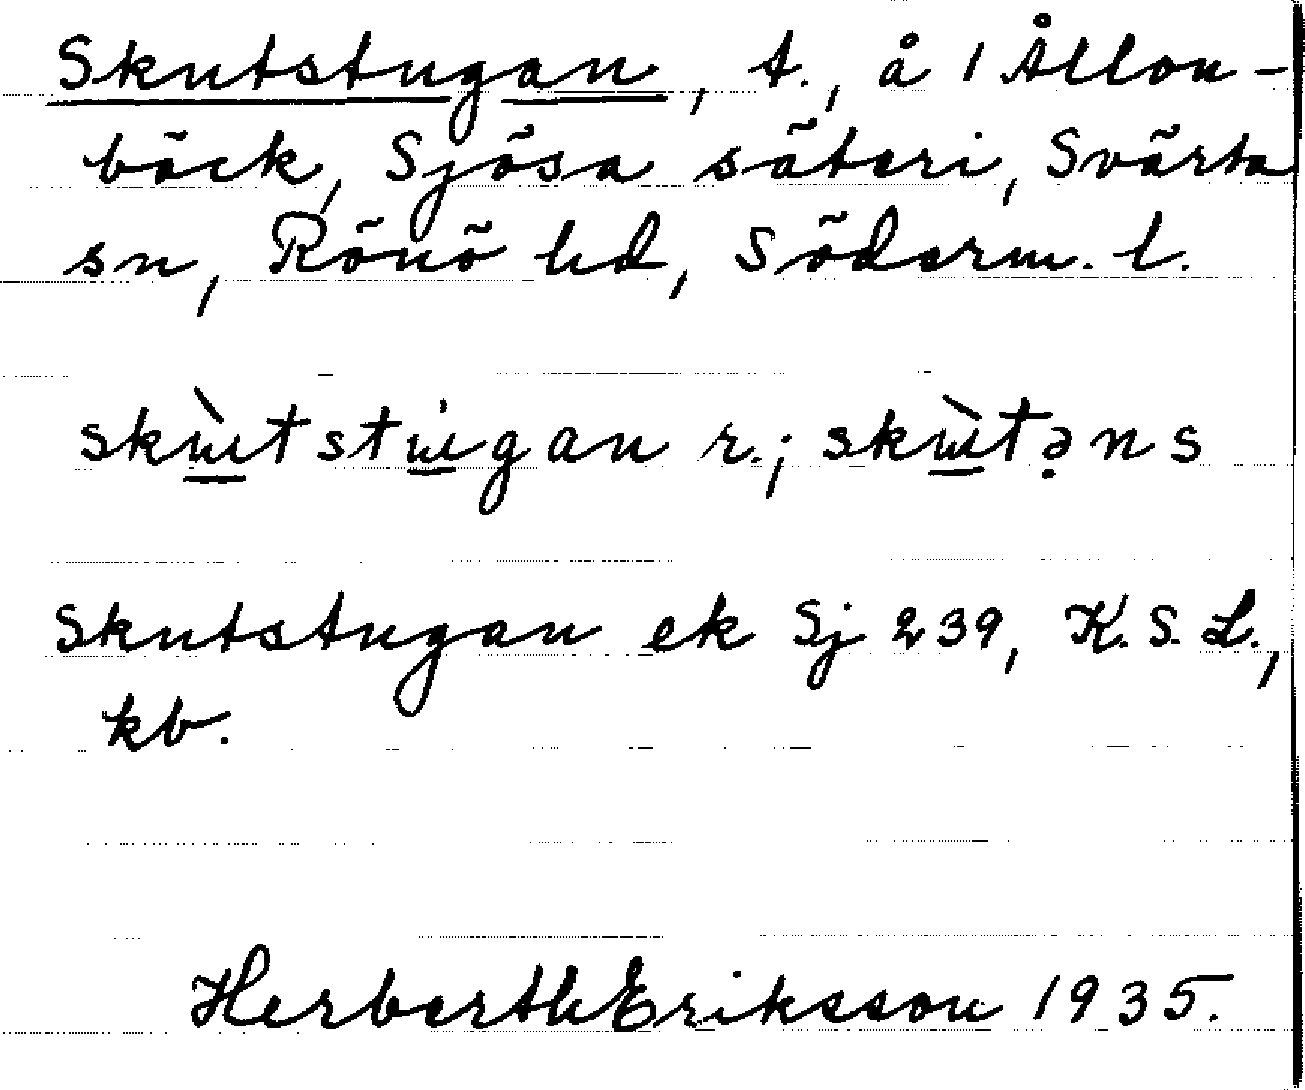 Skutstugan, t., å 1 Ållon-
bäck, Sjösa säteri, Svärta
sn, Rönö hd, Söderm. l.
skùtstu̇gan r.; skùtəns
Skutstugan ek Sj 239, K. S. L.,
kb.
Herberth Eriksson 1935.